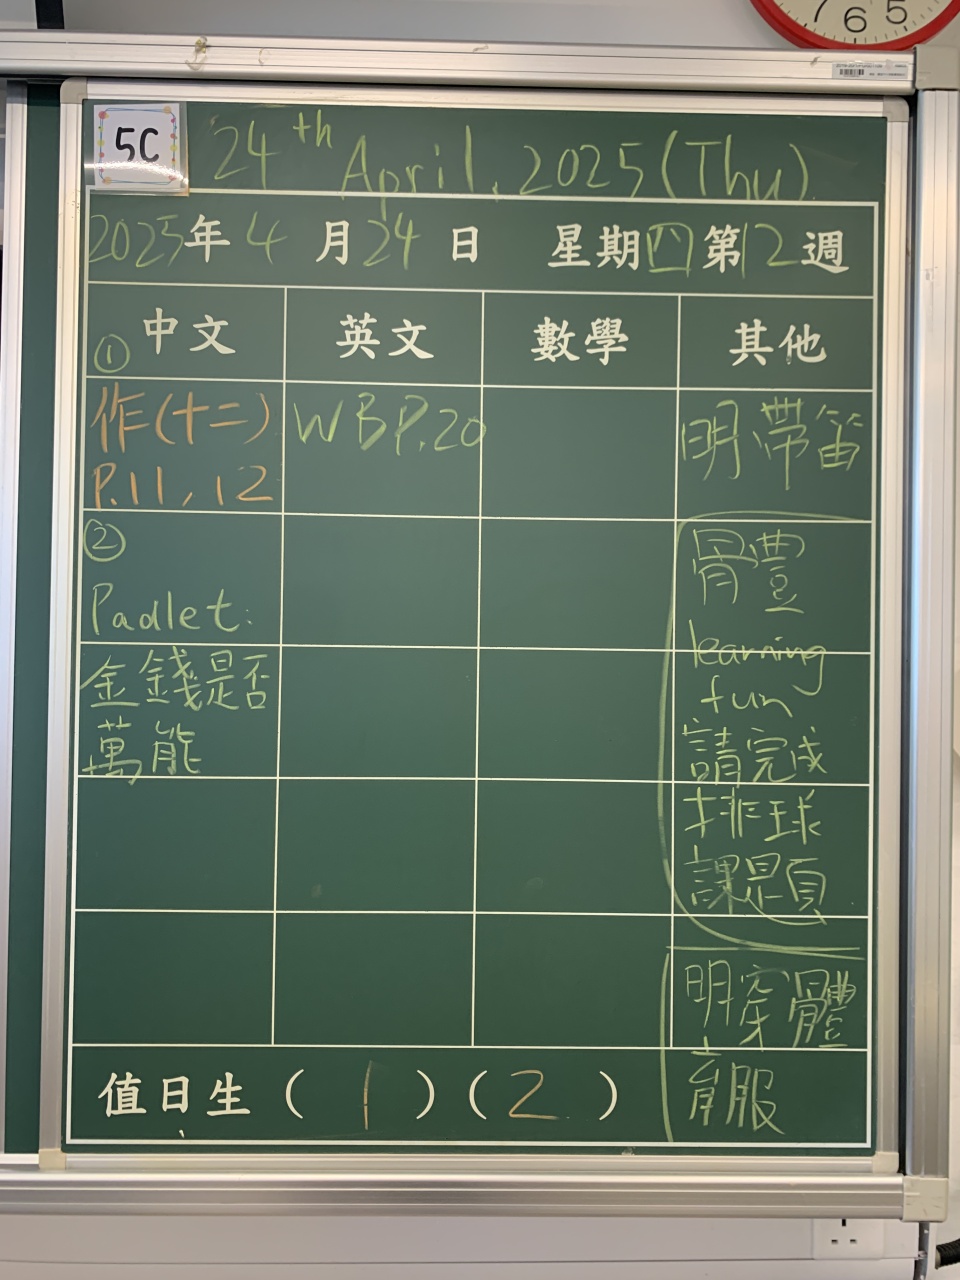 7 6 5
5C
24th April, 2025 (Thu)
2025年4月24日 星期四第12週
中文 英文 數學 其他
①
作(十二)
P.11, 12
②
Padlet:
金錢是否
萬能
WB P.20
明帶笛
體
learning
fun
請完成
排球
課題頁
明穿體
育服
值日生 ( 1 ) ( 2 )